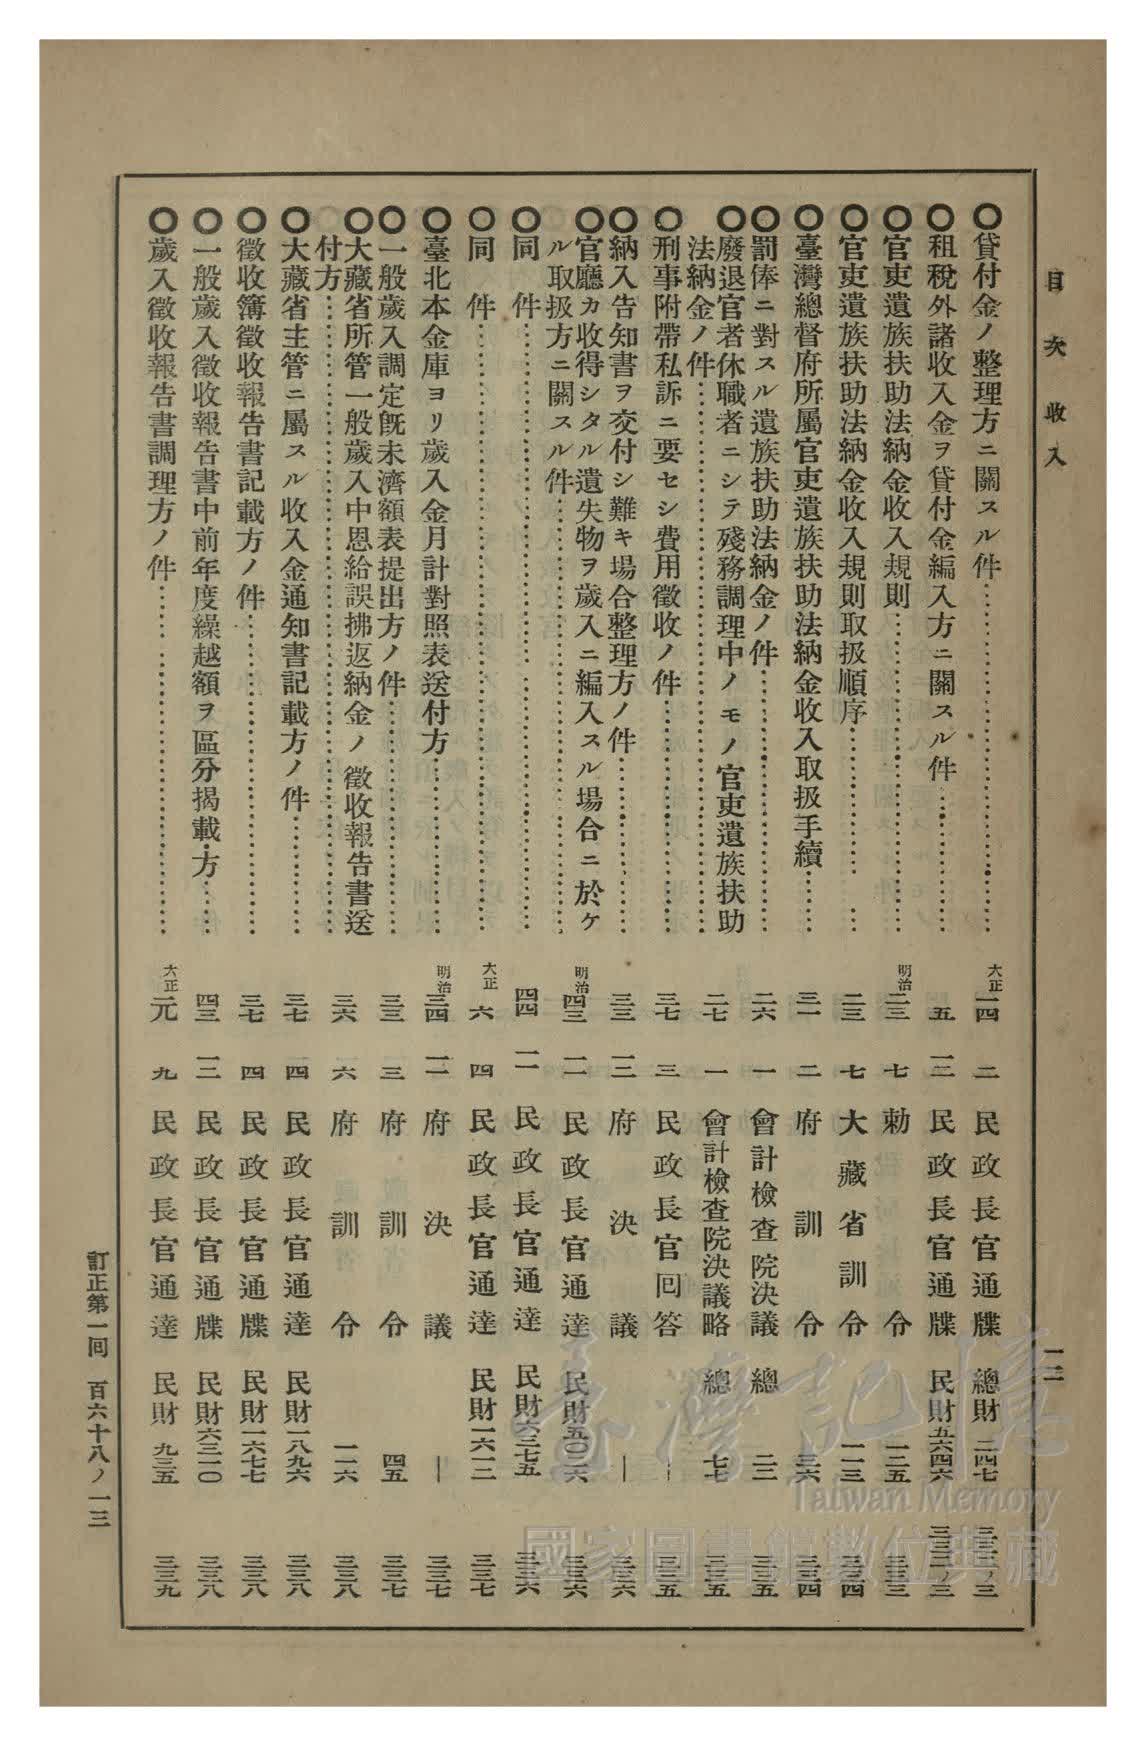 目次 收入
一二
〇貸付金ノ整理方ニ關スル件 大正一四 二 民政長官通牒 總財二四七 三三三ノ三
〇租稅外諸收入金ヲ貸付金編入方ニ關スル件 五 一二 民政長官通牒 民財五六四六 三三三ノ三
〇官吏遺族扶助法納金收入規則 明治二三 七 勅令 一二五 三三三
〇官吏遺族扶助法納金收入規則取扱順序 二三 七 大藏省訓令 一一三 三三四
〇臺灣總督府所屬官吏遺族扶助法納金收入取扱手續 三一 二 府訓令 三六 三三四
〇罰俸ニ對スル遺族扶助法納金ノ件 二六 一 會計檢査院決議 總二三 三三五
〇廢退官者休職者ニシテ殘務調理中ノモノ官吏遺族扶助
法納金ノ件 二七 一 會計檢査院決議略 總七七 三三五
〇刑事附帶私訴ニ要セシ費用徵收ノ件 三七 三 民政長官回答 ― 三三五
〇納入告知書ヲ交付シ難キ場合整理方ノ件 三三 一二 府決議 ― 三三六
〇官廳カ收得シタル遺失物ヲ歲入ニ編入スル場合ニ於ケ
ル取扱方ニ關スル件 明治四三 一一 民政長官通達 民財五〇一六 三三六
〇同件 四四 一一 民政長官通達 民財六三七五 三三六
〇同件 大正六 四 民政長官通達 民財一六一二 三三七
〇臺北本金庫ヨリ歲入金月計對照表送付方 明治三四 一一 府決議 ― 三三七
〇一般歲入調定旣未濟額表提出方ノ件 三三 三 府訓令 四五 三三七
〇大藏省所管一般歲入中恩給誤拂返納金ノ徵收報告書送
付方 三六 六 府訓令 一一六 三三八
〇大藏省主管ニ屬スル收入金通知書記載方ノ件 三七 四 民政長官通達 民財一八九六 三三八
〇徵收簿徵收報告書記載方ノ件 三七 四 民政長官通牒 民財一六七七 三三八
〇一般歲入徵收報告書中前年度繰越額ヲ區分揭載方 四三 一二 民政長官通牒 民財六三一〇 三三八
〇歲入徵收報告書調理方ノ件 大正元 九 民政長官通達 民財九三五 三三九
訂正第一回 百六十八ノ一三
臺灣記憶
Taiwan Memory
國家圖書館數位典藏